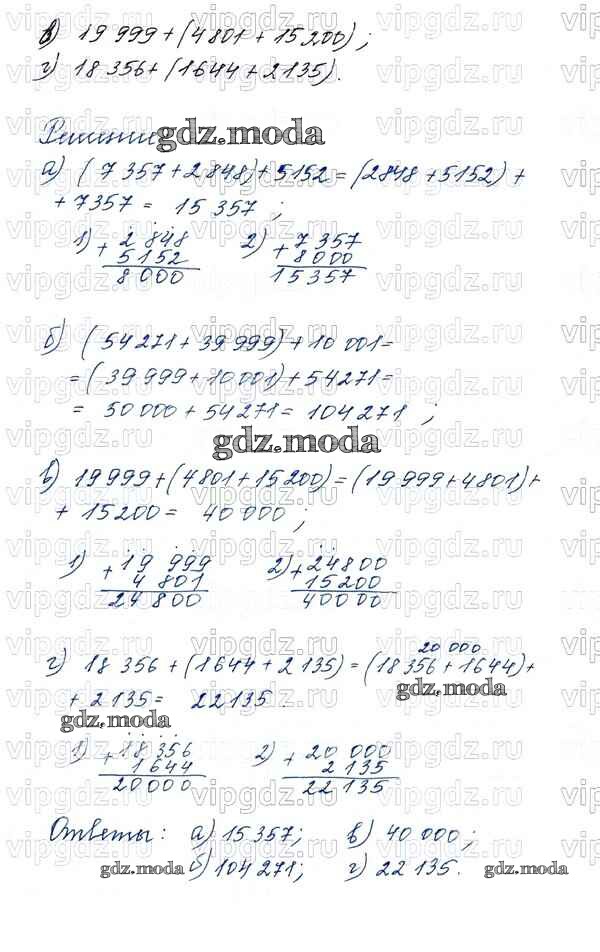 в) 19 999 + (4801 + 15 200);
г) 18 356 + (1644 + 2135).
Решение
gdz.moda
а) (7 357 + 2 848) + 5152 = (2848 + 5152) +
+ 7357 = 15 357;
1) + 2 848
5152
8 000
2) + 7 357
8 000
15357
б) (54 271 + 39 999) + 10 001 =
= (39 999 + 10 001) + 54271 =
= 50 000 + 54 271 = 104 271;
gdz.moda
в) 19 999 + (4801 + 15 200) = (19 999 + 4801) +
+ 15 200 = 40 000;
1) + 19 999
4 801
24 800
2) + 24800
15200
40000
20 000
г) 18 356 + (1644 + 2 135) = (18 356 + 1644) +
+ 2 135 = 22 135.
gdz.moda
gdz.moda
1) + 18 356
1644
20000
2) + 20 000
2 135
22 135
Ответы: а) 15 357; в) 40 000;
б) 104 271; г) 22 135.
gdz.moda
gdz.moda
vipgdz.ru